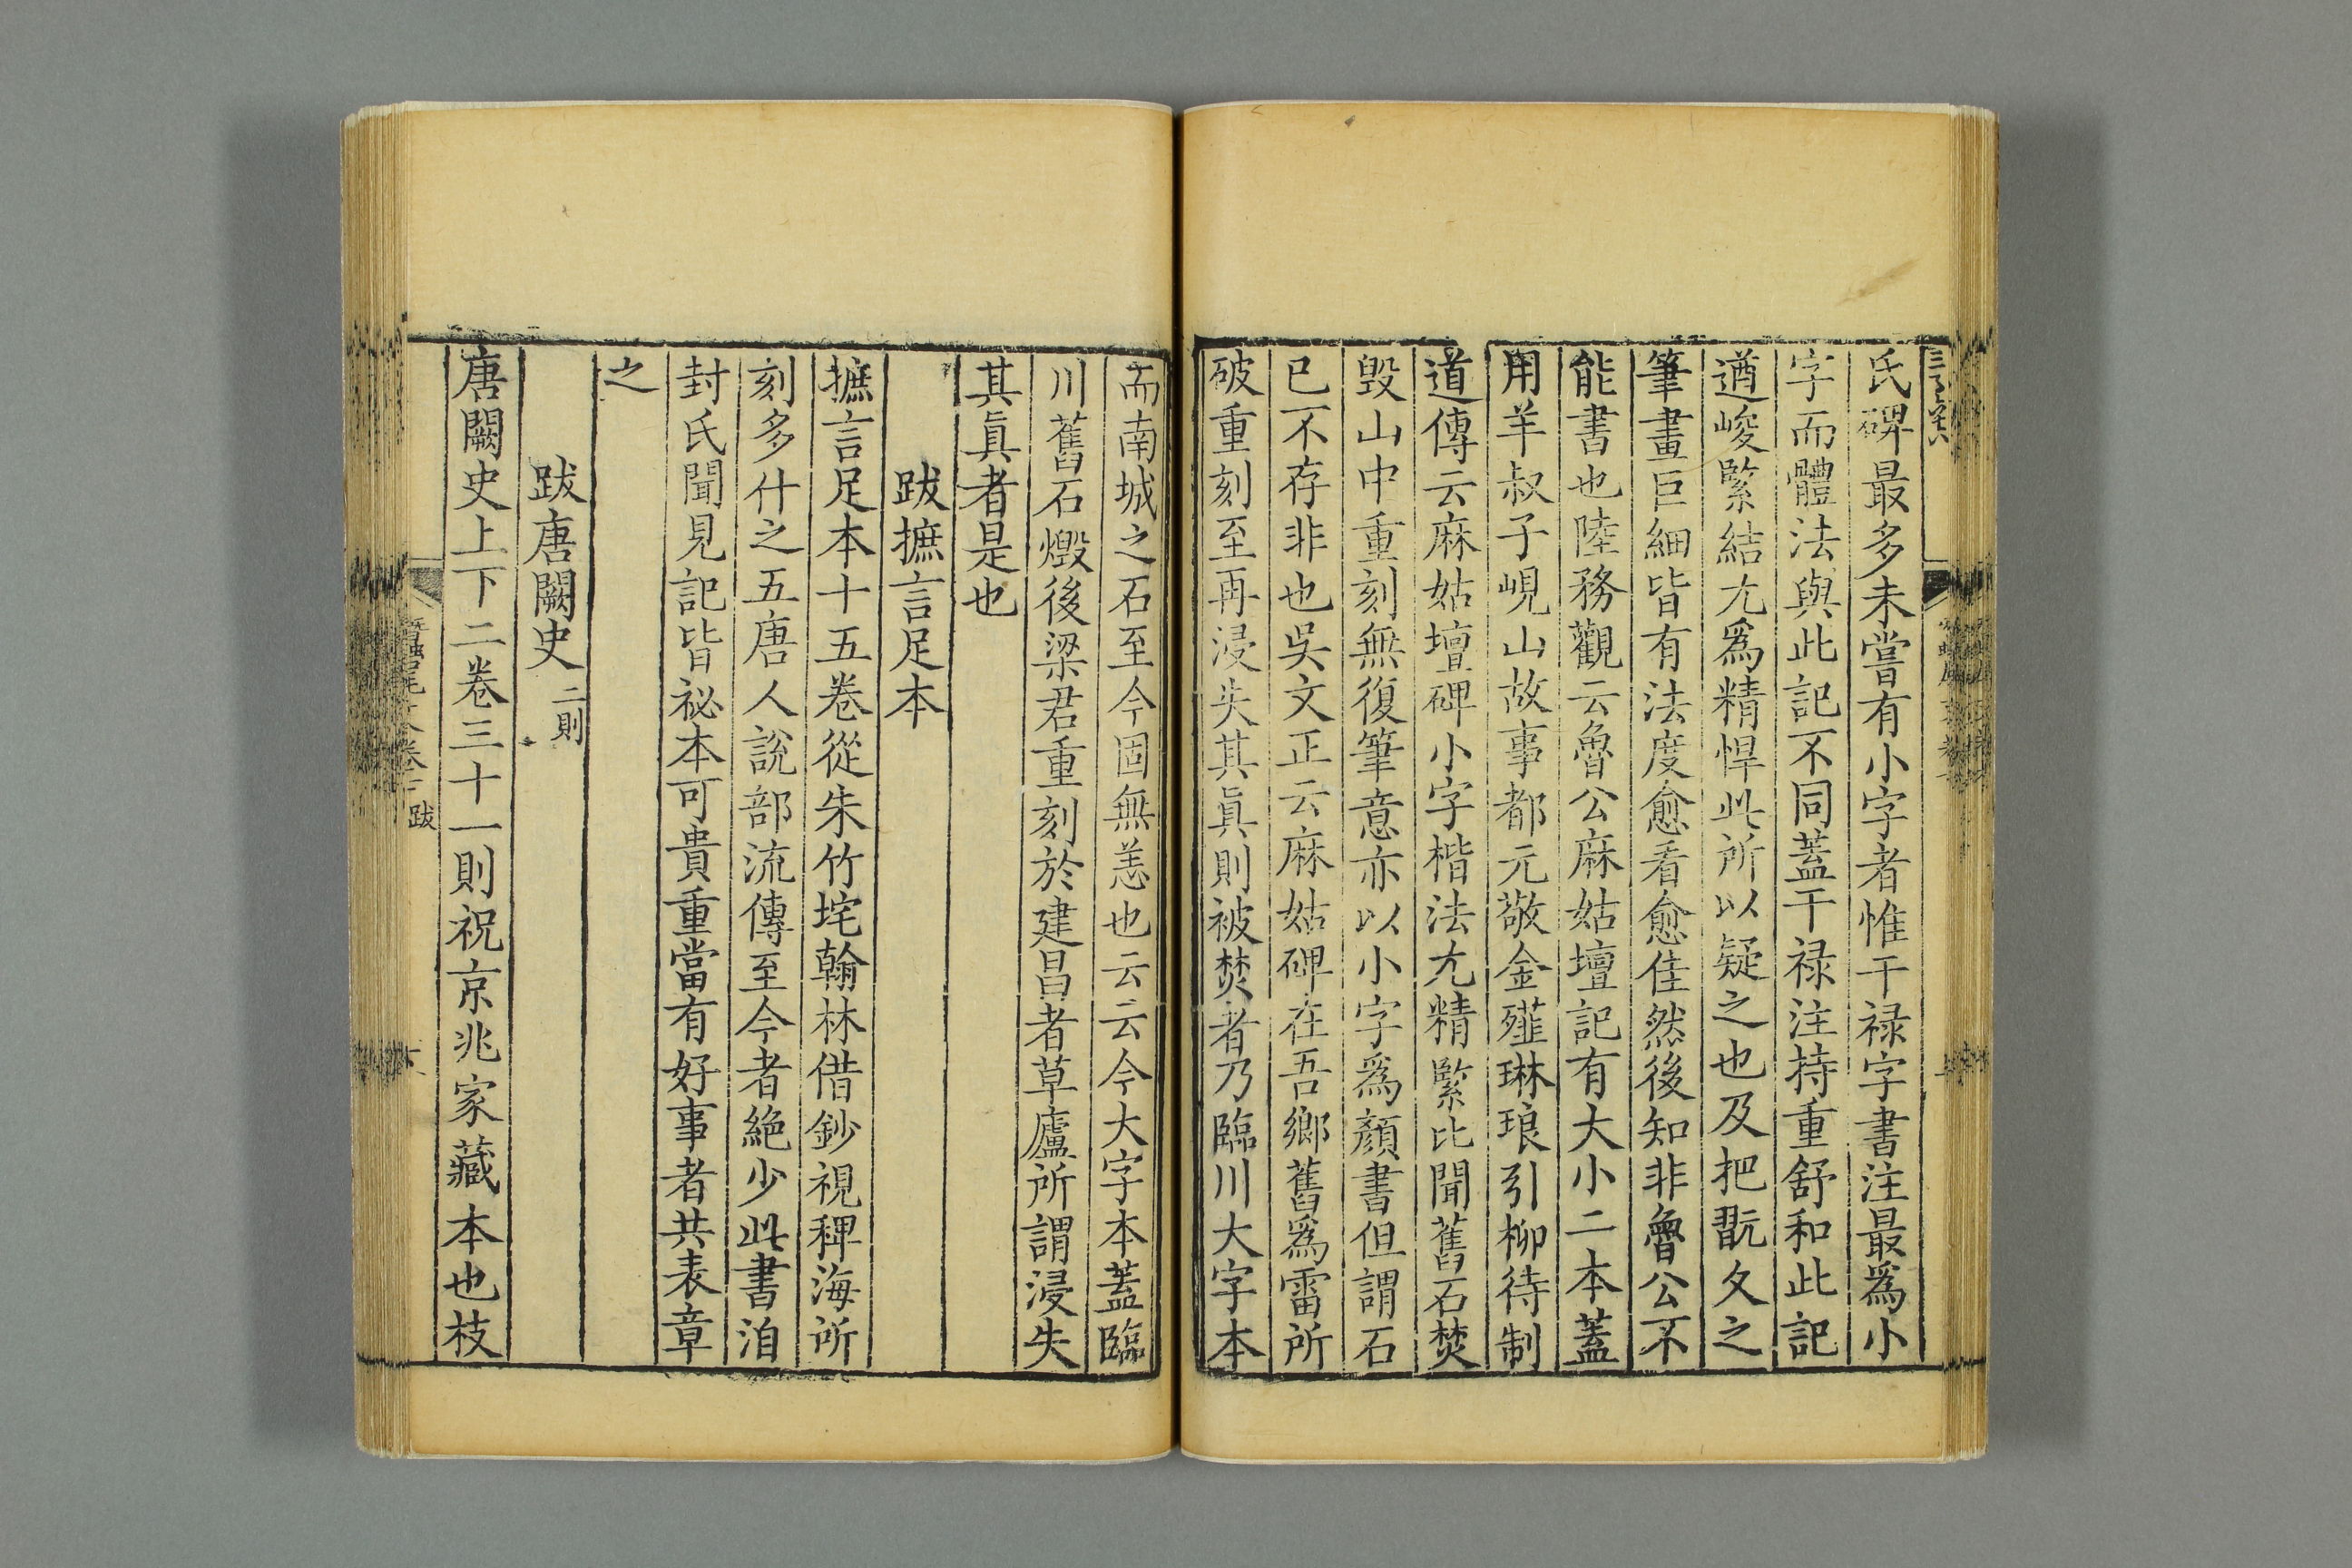 氏碑最多未嘗有小字者惟干禄字書注最爲小
字而體法與此記不同蓋干禄注持重舒和此記
遒峻緊結尤爲精悍此所以疑之也及把翫久之
筆畫巨細皆有法度愈看愈佳然後知非魯公不
能書也陸務觀云魯公麻姑壇記有大小二本蓋
用羊叔子峴山故事都元敬金薤琳琅引柳待制
道傳云麻姑壇碑小字楷法尤精緊比聞舊石焚
毀山中重刻無復筆意亦以小字爲顏書但謂石
已不存非也吳文正云麻姑碑在吾鄉舊爲雷所
破重刻至再浸失其眞則被焚者乃臨川大字本
而南城之石至今固無恙也云云今大字本蓋臨
川舊石燬後梁君重刻於建昌者草廬所謂浸失
其眞者是也
跋摭言足本
摭言足本十五卷從朱竹垞翰林借鈔視稗海所
刻多什之五唐人說部流傳至今者絶少此書洎
封氏聞見記皆祕本可貴重當有好事者共表章
之
跋唐闕史 二則
唐闕史上下二卷三十一則祝京兆家藏本也枝
跋